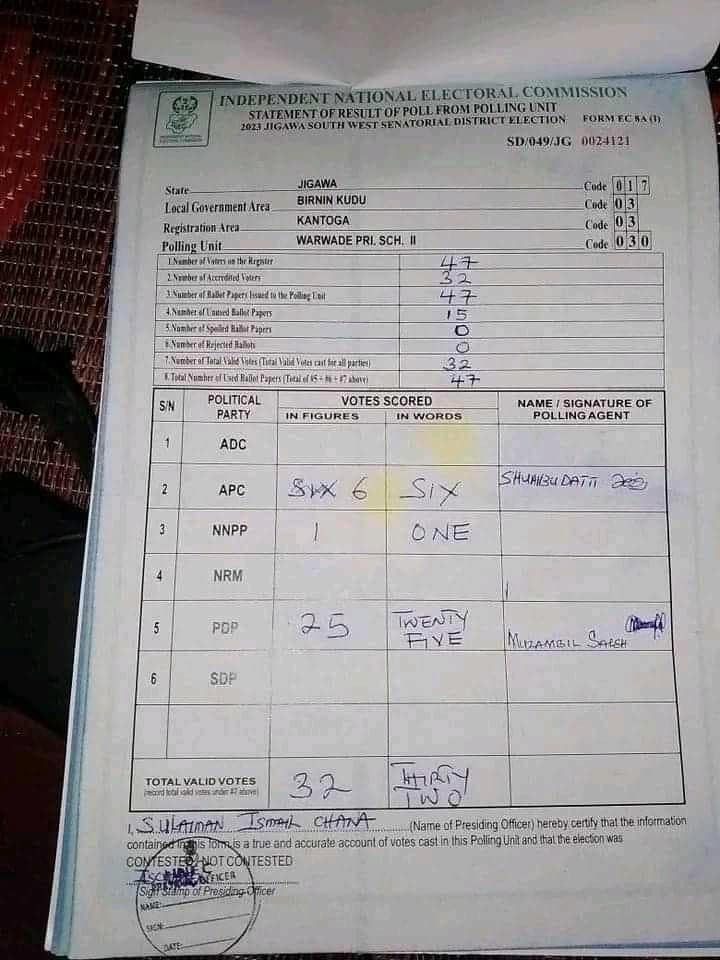 INDEPENDENT NATIONAL ELECTORAL COMMISSION
STATEMENT OF RESULT OF POLL FROM POLLING UNIT
2023 JIGAWA SOUTH WEST SENATORIAL DISTRICT ELECTION FORM EC 8A (I)
SD/049/JG 0024121
State JIGAWA Code 017
Local Government Area BIRNIN KUDU Code 03
Registration Area KANTOGA Code 03
Polling Unit WARWADE PRI. SCH. II Code 030
1.Number of Voters on the Register 47
2.Number of Accredited Voters 32
3.Number of Ballot Papers Issued to the Polling Unit 47
4.Number of Unused Ballot Papers 15
5.Number of Spoiled Ballot Papers 0
6.Number of Rejected Ballots 0
7.Number of Total Valid Votes (Total Valid Votes cast for all parties) 32
8.Total Number of Used Ballot Papers (Total of #5 + #6 + #7 above) 47
S/N POLITICAL PARTY VOTES SCORED NAME / SIGNATURE OF POLLING AGENT
IN FIGURES IN WORDS
1 ADC
2 APC SIX 6 SIX SHUAIBU DATTI
3 NNPP 1 ONE
4 NRM
5 PDP 25 TWENTY FIVE MUZAMBIL SALEH
6 SDP
TOTAL VALID VOTES 32 THIRTY TWO
(record total valid votes under #7 above)
I, SULAIMAN ISMAIL CHANA (Name of Presiding Officer) hereby certify that the information
contained in this form is a true and accurate account of votes cast in this Polling Unit and that the election was
CONTESTED / NOT CONTESTED
OFFICER
Sign Stamp of Presiding Officer
NAME:
SIGN:
DATE: